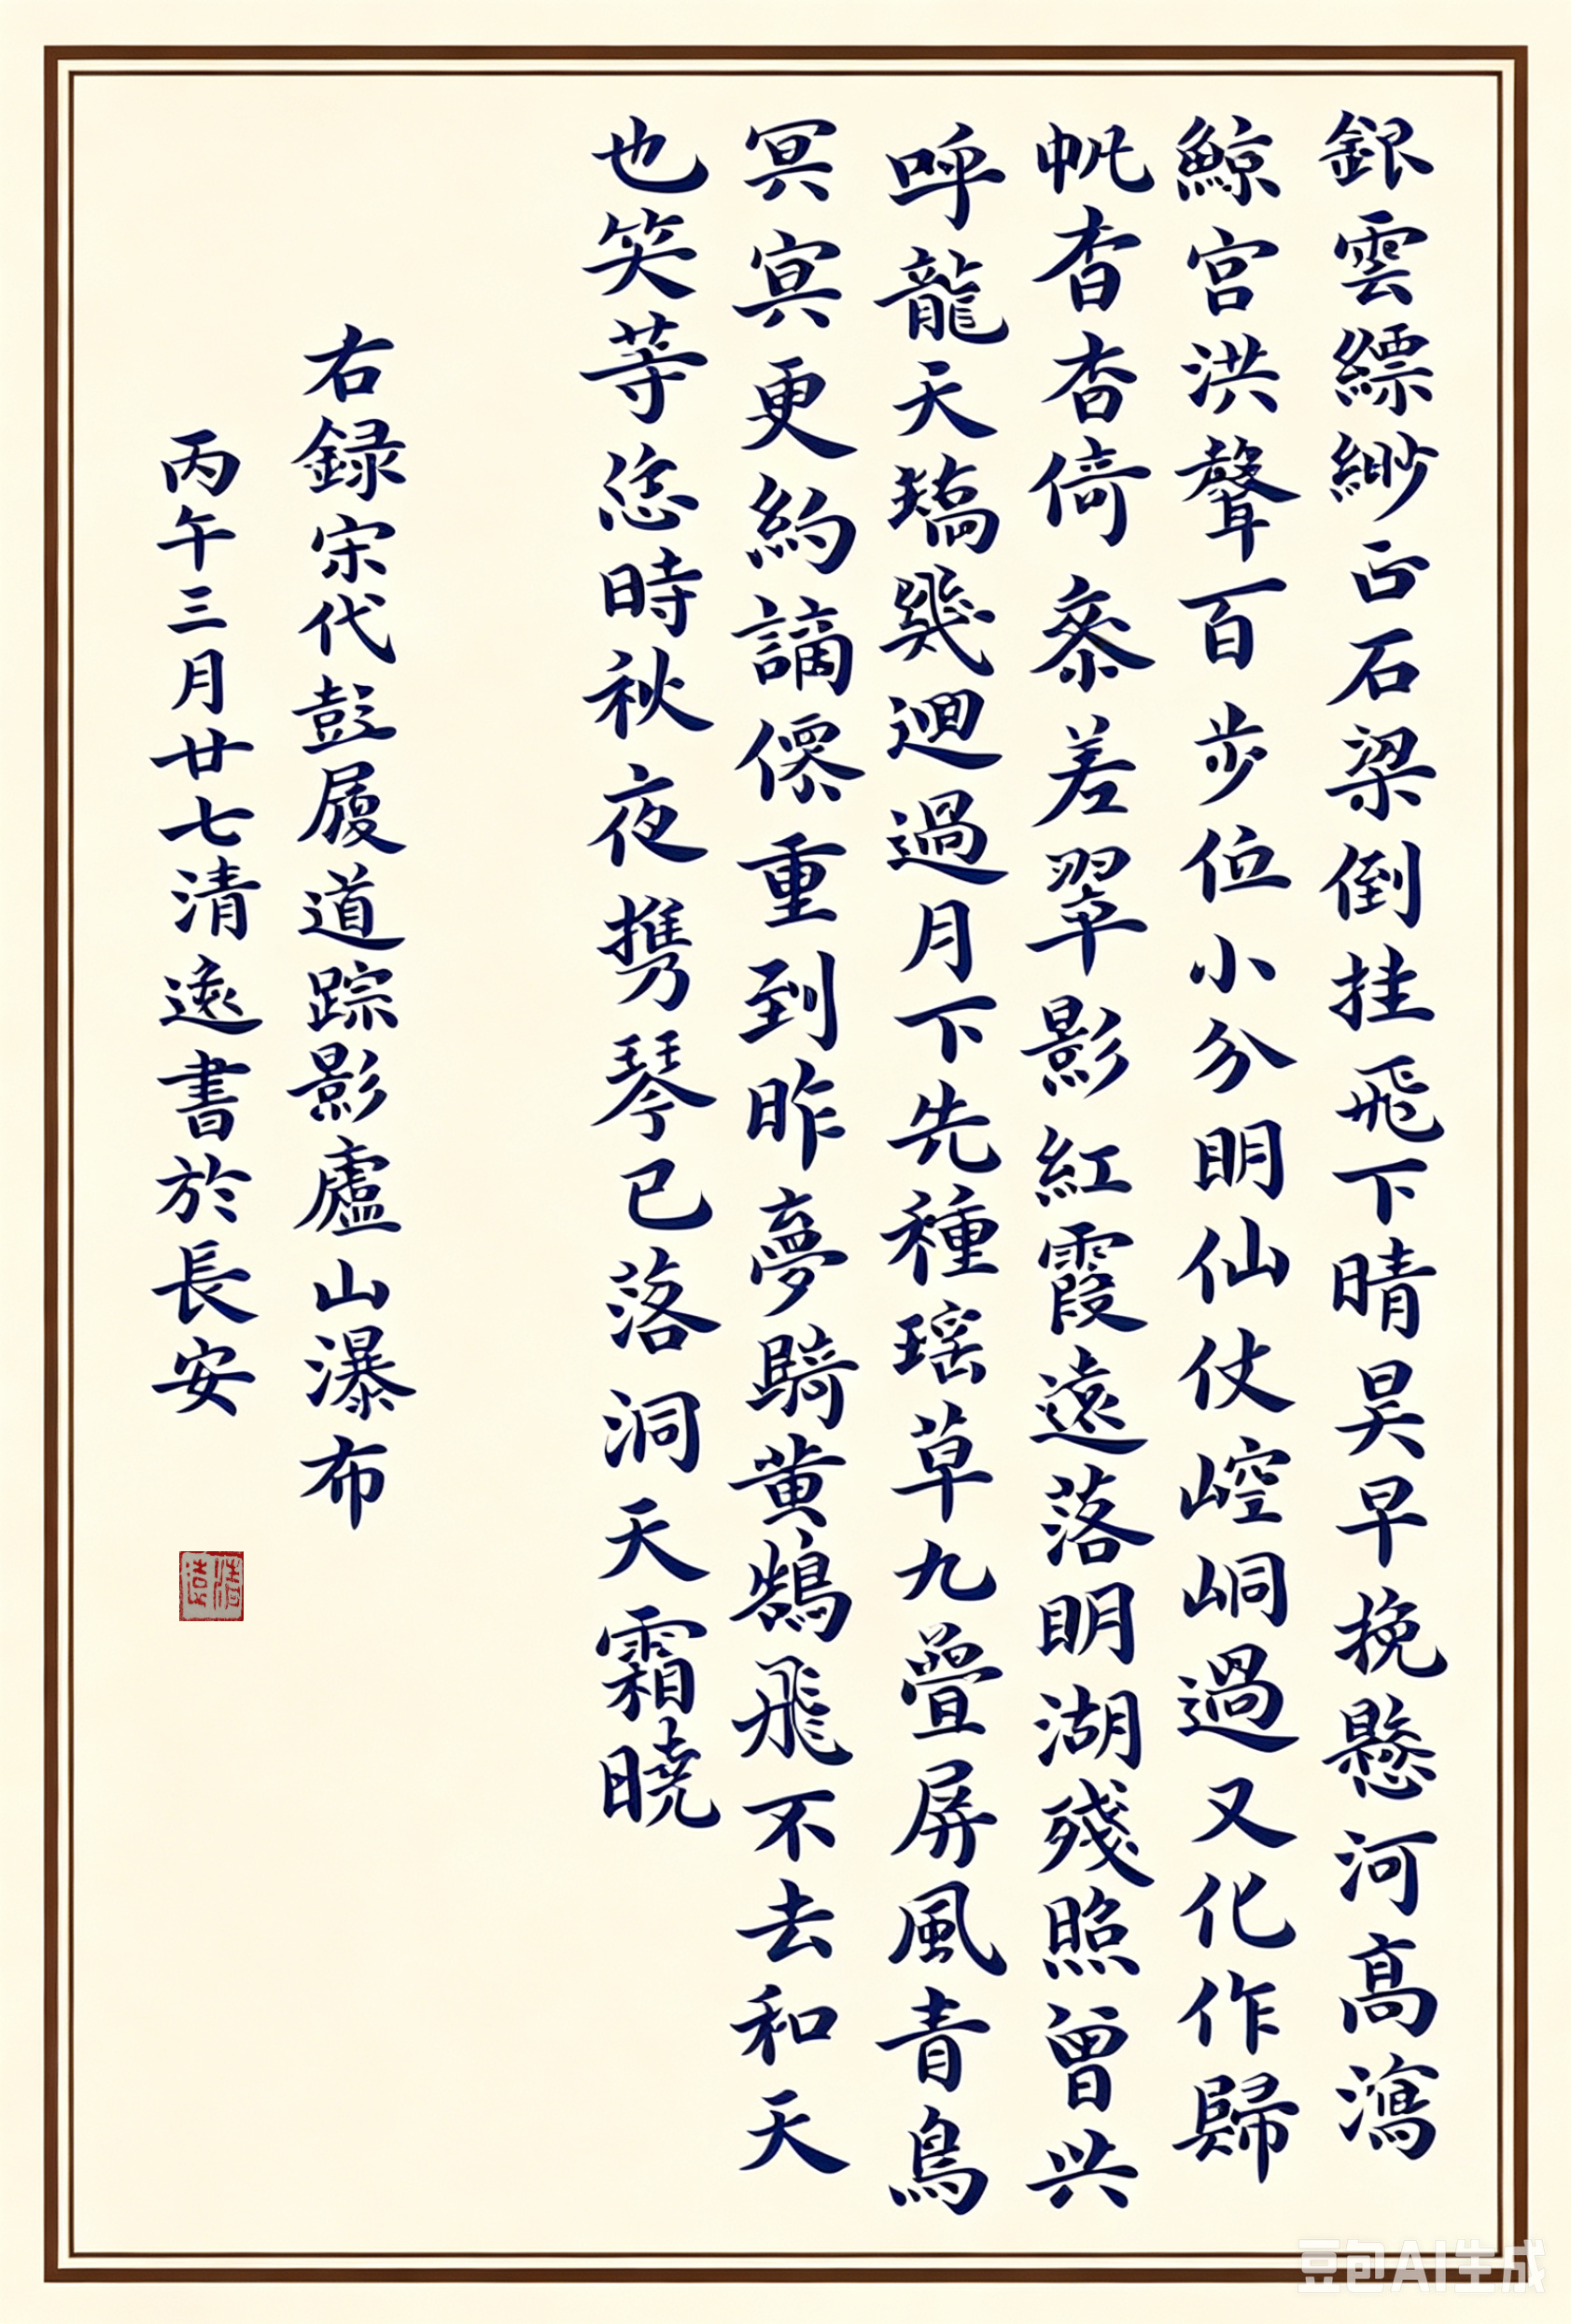 銀雲縹緲正石梁倒挂飛下晴昊早挽懸河高瀉
鯨宮洪聲百步位小分明仙仗崆峒過又化作歸
帆杳杳倚叅差翠影紅霞遠落明湖殘照曾共
呼龍天矯幾迴過月下先種瑶草九疊屏風青鳥
冥冥更約謫僊重到昨夢騎黄鵠飛不去和天
也笑等恁時秋夜携琴已落洞天霜曉
右録宋代彭履道踪影廬山瀑布
丙午三月廿七清遠書於長安
清遠
豆包AI生成